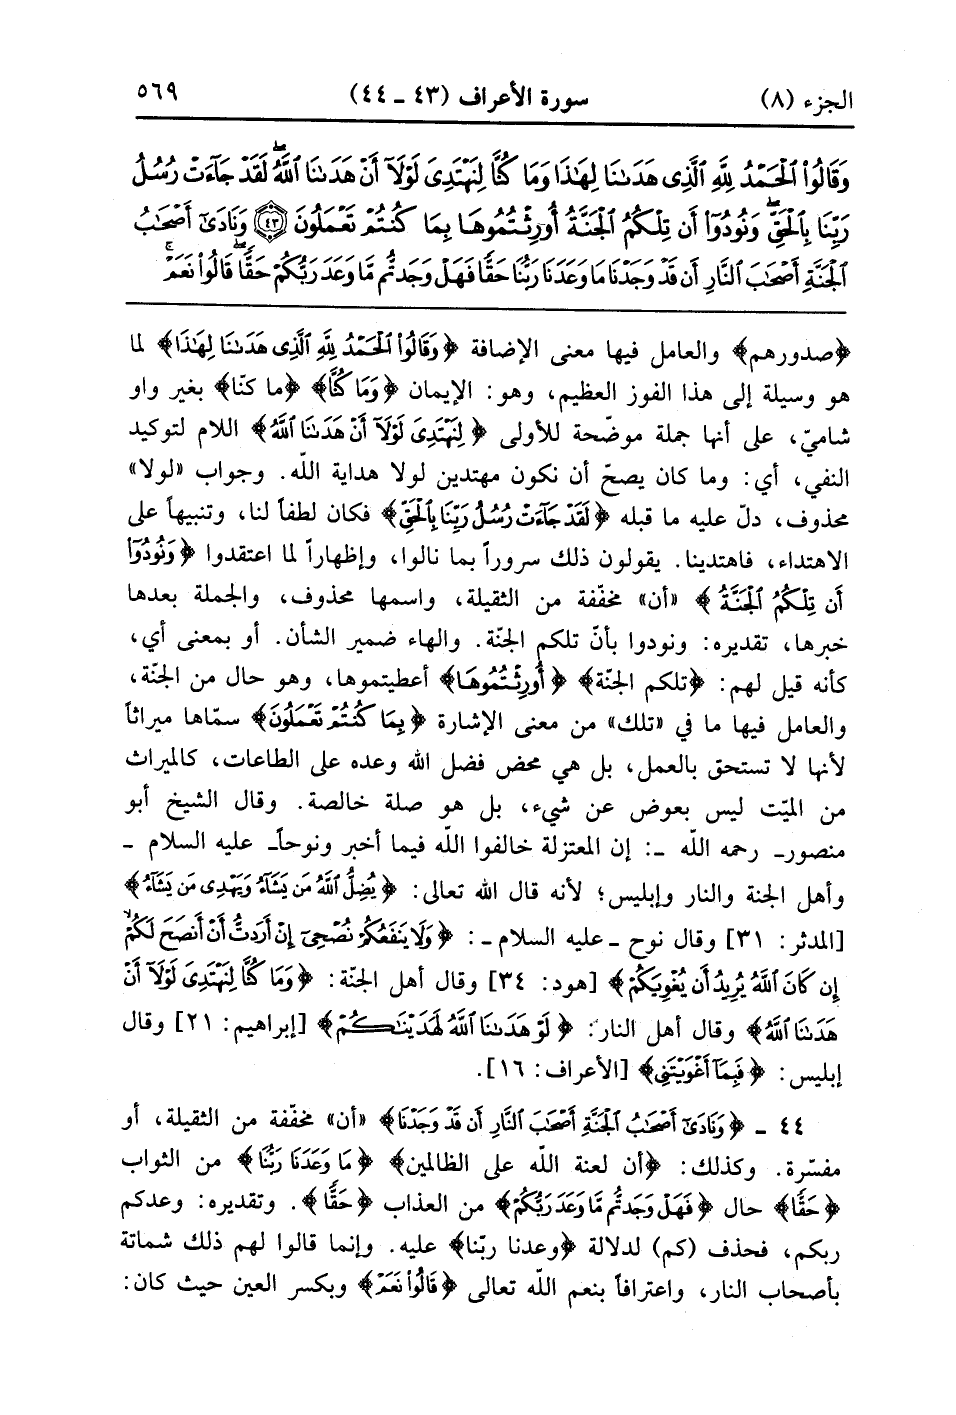 الجزء (٨) سورة الأعراف (٤٣ ـ ٤٤) ٥٦٩
وَقَالُوا۟ ٱلْحَمْدُ لِلَّهِ ٱلَّذِى هَدَىٰنَا لِهَٰذَا وَمَا كُنَّا لِنَهْتَدِىَ لَوْلَآ أَنْ هَدَىٰنَا ٱللَّهُۖ لَقَدْ جَآءَتْ رُسُلُ
رَبِّنَا بِٱلْحَقِّۖ وَنُودُوٓا۟ أَن تِلْكُمُ ٱلْجَنَّةُ أُورِثْتُمُوهَا بِمَا كُنتُمْ تَعْمَلُونَ ﴿٤٣﴾ وَنَادَىٰٓ أَصْحَٰبُ
ٱلْجَنَّةِ أَصْحَٰبَ ٱلنَّارِ أَن قَدْ وَجَدْنَا مَا وَعَدَنَا رَبُّنَا حَقًّا فَهَلْ وَجَدتُّم مَّا وَعَدَ رَبُّكُمْ حَقًّاۖ قَالُوا۟ نَعَمْۚ
﴿صدورهم﴾ والعامل فيها معنى الإضافة ﴿وَقَالُوا۟ ٱلْحَمْدُ لِلَّهِ ٱلَّذِى هَدَىٰنَا لِهَٰذَا﴾ لما
هو وسيلة إلى هذا الفوز العظيم، وهو: الإيمان ﴿وَمَا كُنَّا﴾ ﴿ما كنّا﴾ بغير واو
شاميّ، على أنها جملة موضّحة للأولى ﴿لِنَهْتَدِىَ لَوْلَآ أَنْ هَدَىٰنَا ٱللَّهُ﴾ اللام لتوكيد
النفي، أي: وما كان يصحّ أن نكون مهتدين لولا هداية اللّه. وجواب «لولا»
محذوف، دلّ عليه ما قبله ﴿لَقَدْ جَآءَتْ رُسُلُ رَبِّنَا بِٱلْحَقِّ﴾ فكان لطفاً لنا، وتنبيهاً على
الاهتداء، فاهتدينا. يقولون ذلك سروراً بما نالوا، وإظهاراً لما اعتقدوا ﴿وَنُودُوٓا۟
أَن تِلْكُمُ ٱلْجَنَّةُ﴾ «أن» مخفّفة من الثقيلة، واسمها محذوف، والجملة بعدها
خبرها، تقديره: ونودوا بأنّ تلكم الجنّة. والهاء ضمير الشأن. أو بمعنى أي،
كأنه قيل لهم: ﴿تلكم الجنة﴾ ﴿أُورِثْتُمُوهَا﴾ أعطيتموها، وهو حال من الجنّة،
والعامل فيها ما في «تلك» من معنى الإشارة ﴿بِمَا كُنتُمْ تَعْمَلُونَ﴾ سمّاها ميراثاً
لأنها لا تستحق بالعمل، بل هي محض فضل اللّه وعده على الطاعات، كالميراث
من الميّت ليس بعوض عن شيء، بل هو صلة خالصة. وقال الشيخ أبو
منصورـ رحمه اللّه ـ: إن المعتزلة خالفوا اللّه فيما أخبر ونوحاًـ عليه السلام ـ
وأهل الجنة والنار وإبليس؛ لأنه قال اللّه تعالى: ﴿يُضِلُّ ٱللَّهُ مَن يَشَآءُ وَيَهْدِى مَن يَشَآءُ﴾
[المدثر: ٣١] وقال نوح ـ عليه السلام ـ: ﴿وَلَا يَنفَعُكُمْ نُصْحِىٓ إِنْ أَرَدتُّ أَنْ أَنصَحَ لَكُمْ
إِن كَانَ ٱللَّهُ يُرِيدُ أَن يُغْوِيَكُمْ﴾ [هود: ٣٤] وقال أهل الجنّة: ﴿وَمَا كُنَّا لِنَهْتَدِىَ لَوْلَآ أَنْ
هَدَىٰنَا ٱللَّهُ﴾ وقال أهل النار: ﴿لَوْ هَدَىٰنَا ٱللَّهُ لَهَدَيْنَٰكُمْ﴾ [إبراهيم: ٢١] وقال
إبليس: ﴿فَبِمَآ أَغْوَيْتَنِى﴾ [الأعراف: ١٦].
٤٤ ـ ﴿وَنَادَىٰٓ أَصْحَٰبُ ٱلْجَنَّةِ أَصْحَٰبَ ٱلنَّارِ أَن قَدْ وَجَدْنَا﴾ «أن» مخفّفة من الثقيلة، أو
مفسّرة. وكذلك: ﴿أن لعنة اللّه على الظالمين﴾ ﴿مَا وَعَدَنَا رَبُّنَا﴾ من الثواب
﴿حَقًّا﴾ حال ﴿فَهَلْ وَجَدتُّم مَّا وَعَدَ رَبُّكُمْ﴾ من العذاب ﴿حَقًّا﴾. وتقديره: وعدكم
ربكم، فحذف (كم) لدلالة ﴿وعدنا ربّنا﴾ عليه. وإنما قالوا لهم ذلك شماتة
بأصحاب النار، واعترافاً بنعم اللّه تعالى ﴿قَالُوا۟ نَعَمْ﴾ وبكسر العين حيث كان: